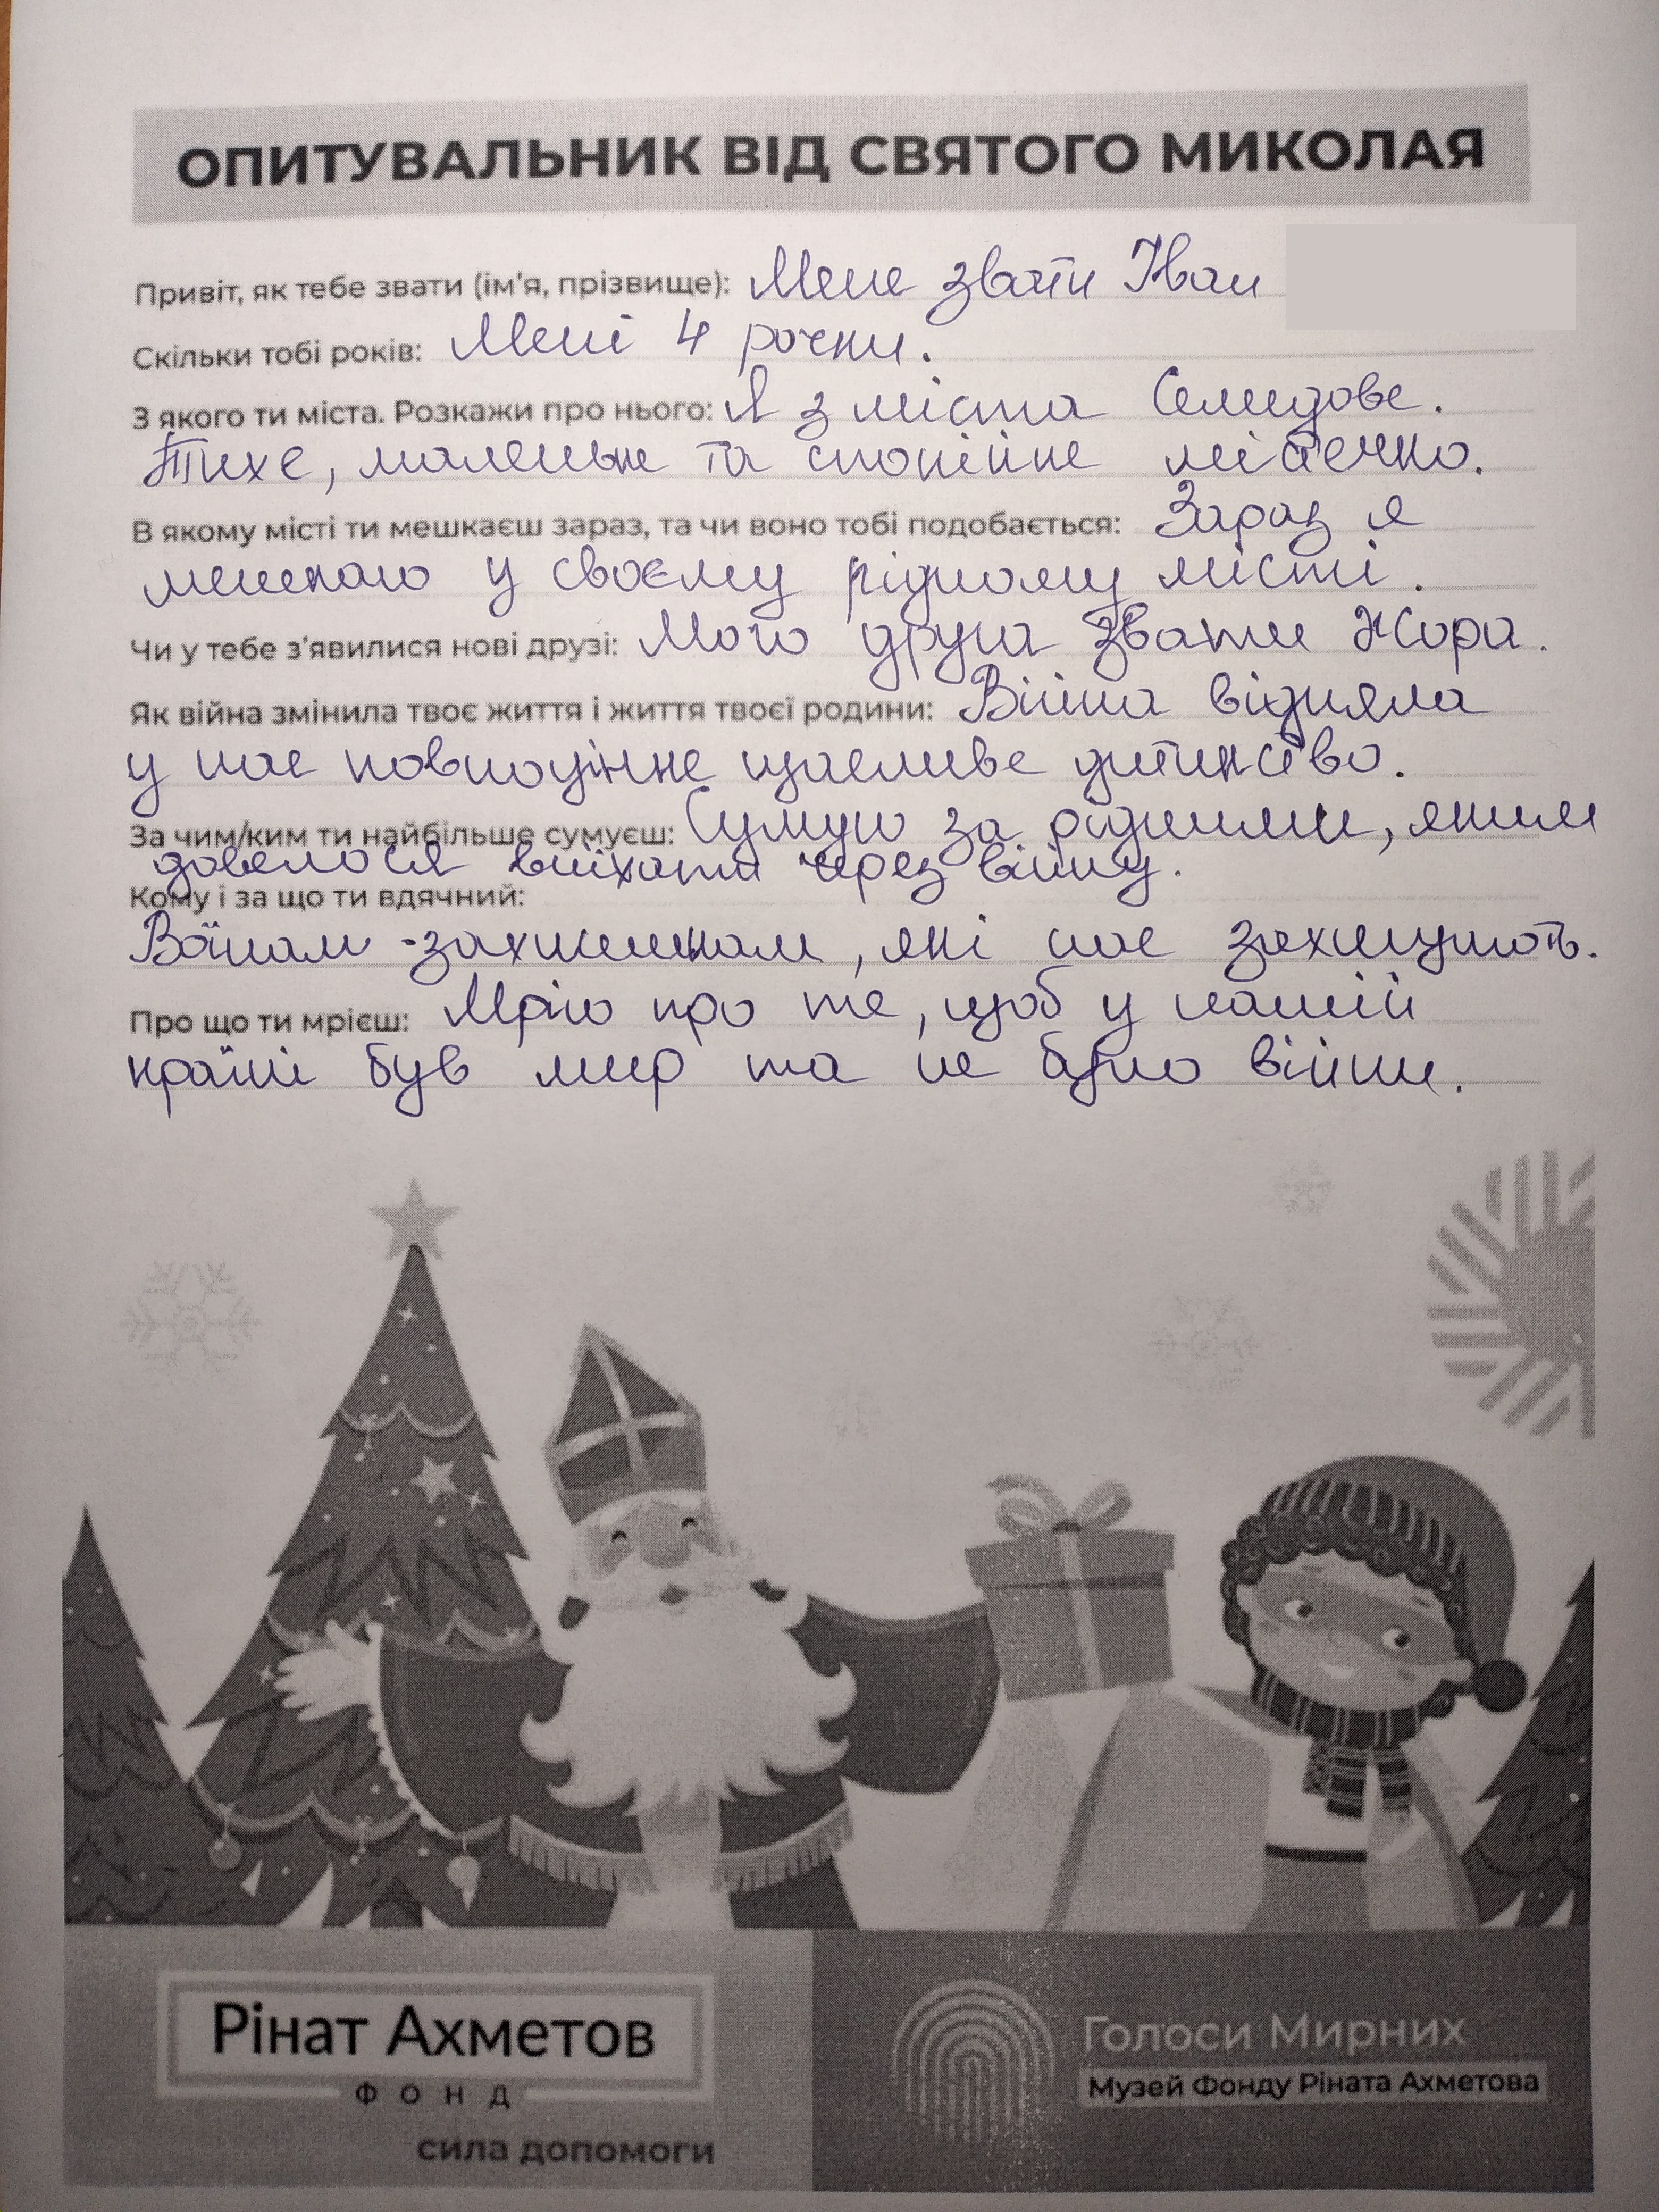 ОПИТУВАЛЬНИК ВІД СВЯТОГО МИКОЛАЯ
Привіт, як тебе звати (ім'я, прізвище): Мене звати Іван
Скільки тобі років: Мені 4 рочки.
З якого ти міста. Розкажи про нього: Я з міста Селидове.
Тихе, маленьке та спокійне містечко.
В якому місті ти мешкаєш зараз, та чи воно тобі подобається: Зараз я
мешкаю у своєму рідному місті.
Чи у тебе з'явилися нові друзі: Мого друга звати Жора.
Як війна змінила твоє життя і життя твоєї родини: Війна відняла
у нас повноцінне щасливе дитинство.
За чим/ким ти найбільше сумуєш: Сумую за рідними, яким
довелося виїхати через війну.
Кому і за що ти вдячний:
Воїнам-захисникам, які нас захищають.
Про що ти мрієш: Мрію про те, щоб у нашій
країні був мир та не було війни.
Рінат Ахметов
ФОНД
сила допомоги
Голоси Мирних
Музей Фонду Ріната Ахметова